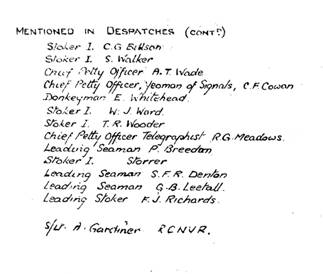 MENTIONED IN DESPATCHES (CONTD)
Stoker I. C.G Billson
Stoker I. S. Walker
Chief Petty Officer A.T. Wade
Chief Petty Officer, Yeoman of Signals, C.F. Cowan
Donkeyman E. Whitehead.
Stoker I. W. J. Ward.
Stoker I. T.R. Wooder
Chief Petty Officer Telegraphist R.G. Meadows.
Leading Seaman P. Breedan
Stoker I. Storrer
Leading Seaman S.F.R. Denton
Leading Seaman G.B.
Leading Stoker F.J. Richards.
S/Lt. A. Gardiner R.C.N.V.R.